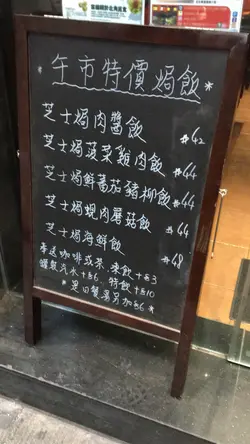 *午市特價焗飯*
芝士焗肉醬飯 $42
芝士焗菠菜雞肉飯 $44
芝士焗鮮蕃茄豬柳飯 $44
芝士焗蜆肉蘑菇飯 $44
芝士焗海鮮飯 $48
奉送咖啡或茶、凍飲+$3
罐裝汽水+$6、特飲+$10